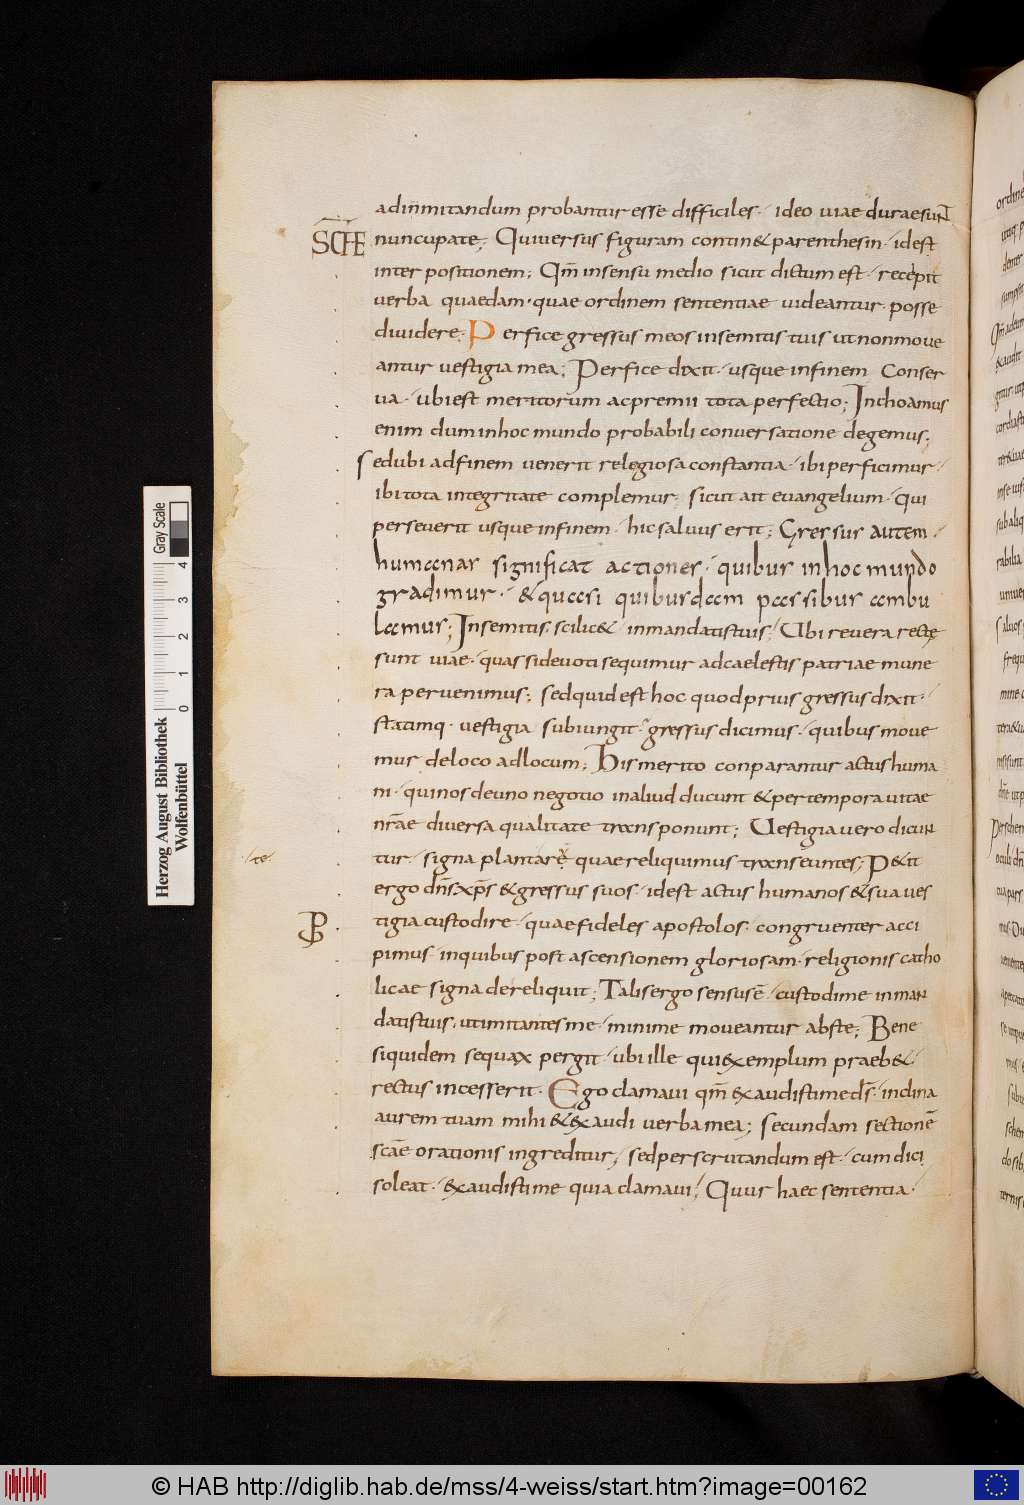 adinmitandum probantur esse difficiles · ideo uiae durae sunt
SCHE
nuncupate; Quiuersus figuram contin& parenthesin · idest
inter positionem; Qm̄ insensu medio sicut dictum est · recepit
uerba quaedam · quae ordinem sententiae uideantur · posse
diuidere · Perfice gressus meos insemitis tuis ut nonmoue
antur uestigia mea; Perfice dixit · usque infinem Conser
ua · ubi est meritorum ac premii tota perfectio; Inchoamus
enim dum inhoc mundo probabili conuersatione degemus;
Sedubi adfinem uenerit relegiosa constantia · ibi perficimur ·
ibi tota integritate complemur; sicut ait euangelium · qui
perseuerit usque infinem · hic saluus erit; Gressus autem ·
humanas significat actiones · quibus inhoc mundo
gradimur · & quasi quibusdam passibus ambu
lamus; Insemitis scilic& · inmandatis tuis; Ubi reuera recte
sunt uiae · quas sideuoti sequimur ad caelestis patriae mune
ra peruenimus; sed quid est hoc quod prius gressus dixit ·
statimq · uestigia subiungit · gressus dicimus · quibus moue
mur deloco adlocum; His merito conparantur actus huma
ni · qui nos deuno negotio inaliud ducunt & per tempora uitae
nr̄ae diuersa qualitate transponunt; Uestigia uero dicun
te
tur · signa plantare quae reliquimus transeuntes; P&it
ergo dn̄s xp̄s & gressus suos · idest actus humanos & sua ues
tigia custodire · quae fideles apostolos · congruenter acci
pimus · inquibus post ascensionem gloriosam · religionis catho
licae signa dereliquit; Talis ergo sensus ē · custodi me inman
datis tuis · ut imitantes me · minime moueantur abs te; Bene
siquidem sequax pergit · ubi ille qui exemplum praeb& ·
rectus incesserit · Ego clamaui qm̄ exaudisti me dr̄s · inclina
aurem tuam mihi & exaudi uerba mea; secundam sectionē
sc̄ae orationis ingreditur; sed perscrutandum est · cum dici
soleat · exaudisti me quia clamaui; Quur haec sententia ·
Herzog August Bibliothek
Wolfenbüttel
0 1 2 3 4
Gray Scale
© HAB http://diglib.hab.de/mss/4-weiss/start.htm?image=00162